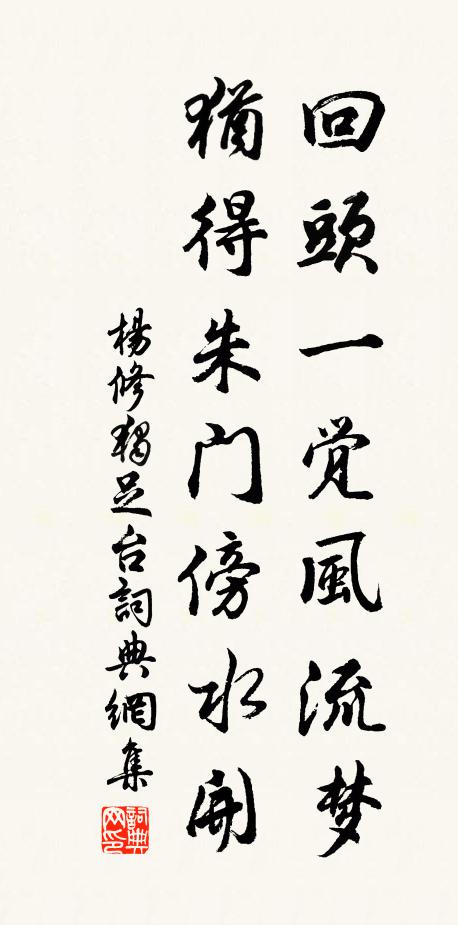 回頭一覚風流梦
猶得朱門傍水開
楊修獨足台詞典網集
詞典网印